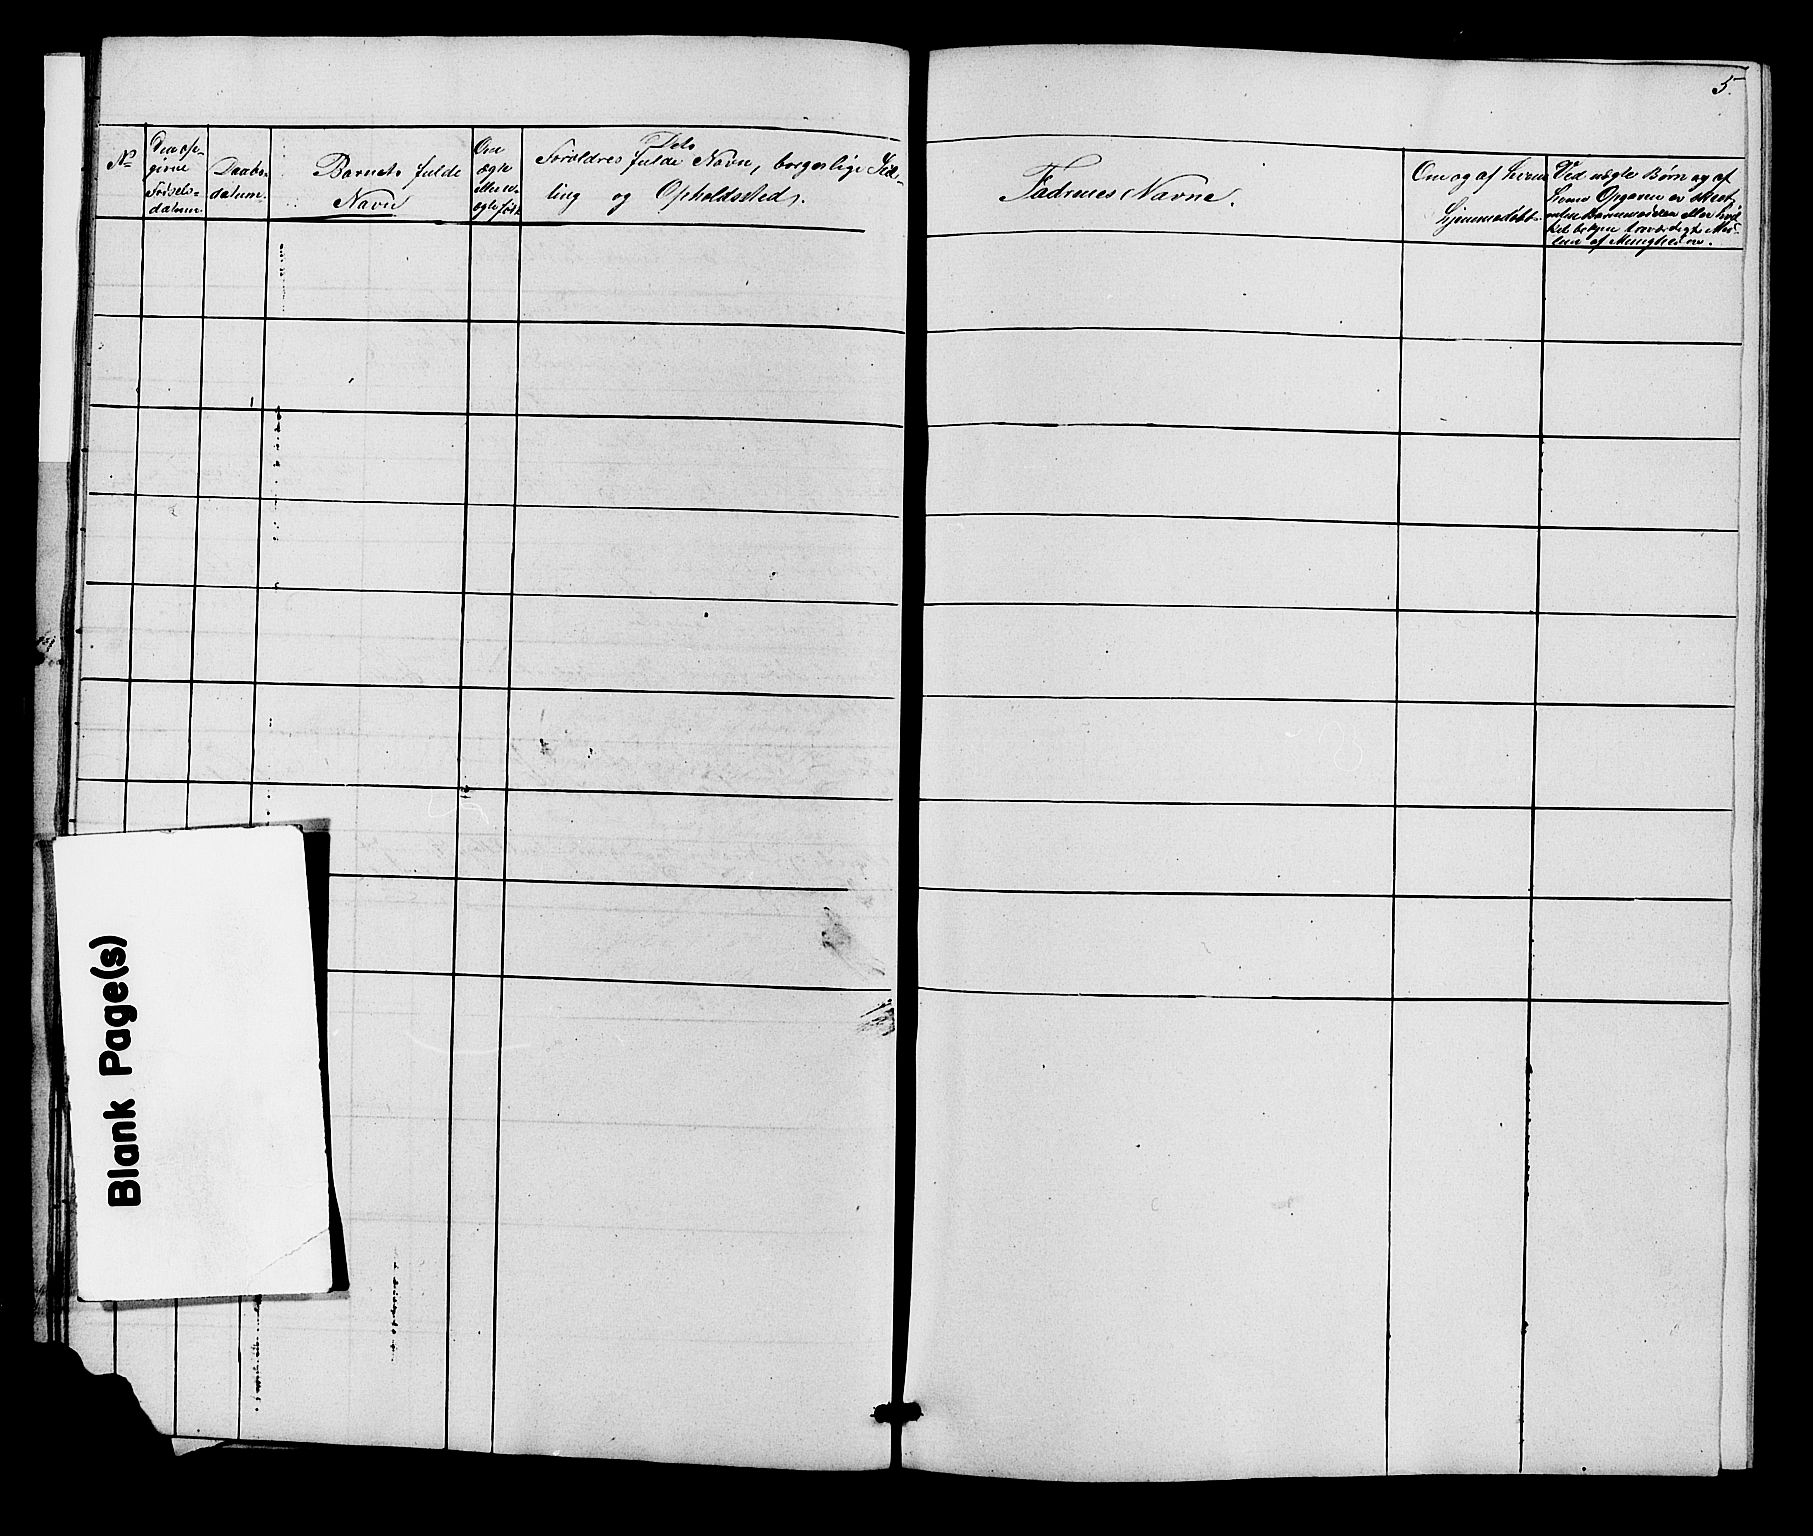 5.
No
Den opgivne Fødsels-datum.
Daabs-datum.
Barnets fulde
Navn
Om ægte eller uægte født
Dets
Forældres fulde Navn, borgerlige Stil-
ling og Opholdssted.
Faderenes Navne.
Om og af hvem
hjemmedøbt.
Ved uægte Børn og af
hvem Opgaven er
eller
af
Blank Page(s)